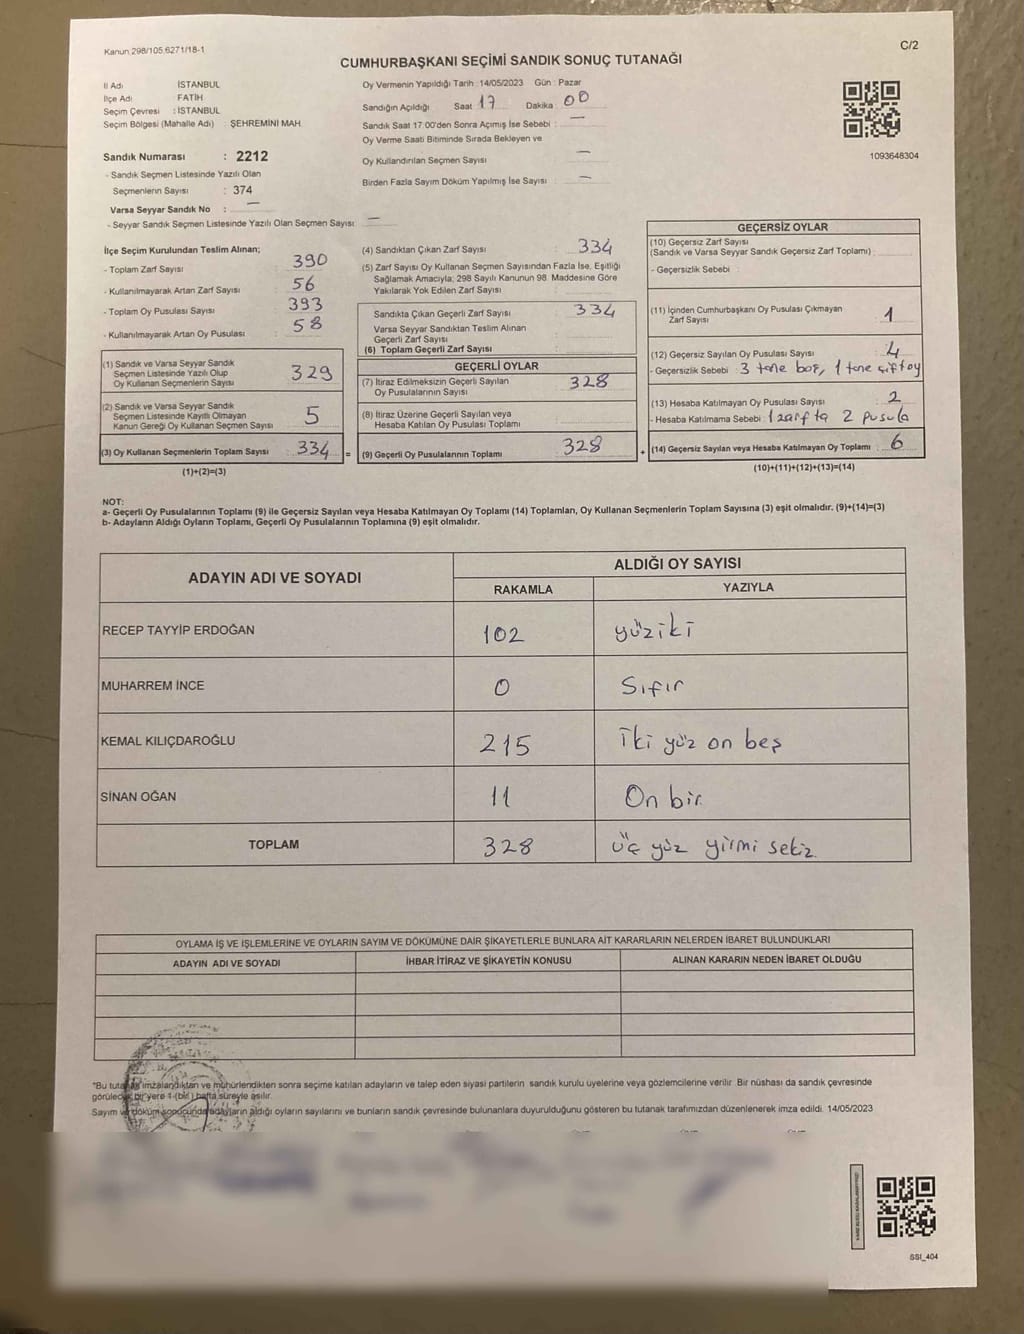 Kanun 298/105,6271/18-1
C/2
CUMHURBAŞKANI SEÇİMİ SANDIK SONUÇ TUTANAĞI
İl Adı İSTANBUL
İlçe Adı FATİH
Seçim Çevresi : İSTANBUL
Seçim Bölgesi (Mahalle Adı) : ŞEHREMİNİ MAH.
Sandık Numarası : 2212
- Sandık Seçmen Listesinde Yazılı Olan
Seçmenlerin Sayısı : 374
Varsa Seyyar Sandık No : —
- Seyyar Sandık Seçmen Listesinde Yazılı Olan Seçmen Sayısı —
Oy Vermenin Yapıldığı Tarih : 14/05/2023 Gün : Pazar
Sandığın Açıldığı Saat 17 Dakika : 00
Sandık Saat 17:00'den Sonra Açımış İse Sebebi : —
Oy Verme Saati Bitiminde Sırada Bekleyen ve
Oy Kullandırılan Seçmen Sayısı —
Birden Fazla Sayım Döküm Yapılmış İse Sayısı : —
1093648304
İlçe Seçim Kurulundan Teslim Alınan;
- Toplam Zarf Sayısı 390
- Kullanılmayarak Artan Zarf Sayısı 56
- Toplam Oy Pusulası Sayısı 393
- Kullanılmayarak Artan Oy Pusulası 58
(1) Sandık ve Varsa Seyyar Sandık
Seçmen Listesinde Yazılı Olup
Oy Kullanan Seçmenlerin Sayısı 329
(2) Sandık ve Varsa Seyyar Sandık
Seçmen Listesinde Kayıtlı Olmayan
Kanun Gereği Oy Kullanan Seçmen Sayısı 5
(3) Oy Kullanan Seçmenlerin Toplam Sayısı : 334 =
(1)+(2)=(3)
(4) Sandıktan Çıkan Zarf Sayısı : 334
(5) Zarf Sayısı Oy Kullanan Seçmen Sayısından Fazla İse, Eşitliği
Sağlamak Amacıyla; 298 Sayılı Kanunun 98. Maddesine Göre
Yakılarak Yok Edilen Zarf Sayısı
Sandıkta Çıkan Geçerli Zarf Sayısı : 334
Varsa Seyyar Sandıktan Teslim Alınan
Geçerli Zarf Sayısı
(6) Toplam Geçerli Zarf Sayısı :
GEÇERLİ OYLAR
(7) İtiraz Edilmeksizin Geçerli Sayılan
Oy Pusulasının Sayısı 328
(8) İtiraz Üzerine Geçerli Sayılan veya
Hesaba Katılan Oy Pusulası Toplamı
(9) Geçerli Oy Pusulalarının Toplamı 328 +
GEÇERSİZ OYLAR
(10) Geçersiz Zarf Sayısı
(Sandık ve Varsa Seyyar Sandık Geçersiz Zarf Toplamı) :
- Geçersizlik Sebebi :
(11) İçinden Cumhurbaşkanı Oy Pusulası Çıkmayan
Zarf Sayısı 1
(12) Geçersiz Sayılan Oy Pusulası Sayısı : 4
- Geçersizlik Sebebi : 3 tane boş, 1 tane çift oy
(13) Hesaba Katılmayan Oy Pusulası Sayısı : 2
- Hesaba Katılmama Sebebi : 1 zarfta 2 pusula
(14) Geçersiz Sayılan veya Hesaba Katılmayan Oy Toplamı : 6
(10)+(11)+(12)+(13)=(14)
NOT:
a- Geçerli Oy Pusulalarının Toplamı (9) ile Geçersiz Sayılan veya Hesaba Katılmayan Oy Toplamı (14) Toplamları, Oy Kullanan Seçmenlerin Toplam Sayısına (3) eşit olmalıdır. (9)+(14)=(3)
b- Adayların Aldığı Oyların Toplamı, Geçerli Oy Pusulalarının Toplamına (9) eşit olmalıdır.
ADAYIN ADI VE SOYADI
ALDIĞI OY SAYISI
RAKAMLA YAZIYLA
RECEP TAYYİP ERDOĞAN 102 yüziki
MUHARREM İNCE 0 Sıfır
KEMAL KILIÇDAROĞLU 215 İki yüz on beş
SİNAN OĞAN 11 On bir
TOPLAM 328 üç yüz yirmi sekiz
OYLAMA İŞ VE İŞLEMLERİNE VE OYLARIN SAYIM VE DÖKÜMÜNE DAİR ŞİKAYETLERLE BUNLARA AİT KARARLARIN NELERDEN İBARET BULUNDUKLARI
ADAYIN ADI VE SOYADI İHBAR İTİRAZ VE ŞİKAYETİN KONUSU ALINAN KARARIN NEDEN İBARET OLDUĞU
"Bu tutanak imzalandıktan ve mühürlendikten sonra seçime katılan adayların ve talep eden siyasi partilerin sandık kurulu üyelerine veya gözlemcilerine verilir. Bir nüshası da sandık çevresinde
görülecek bir yere 1 (bir) hafta süreyle asılır.
Sayım ve döküm sonucunda adayların aldığı oyların sayılarını ve bunların sandık çevresinde bulunanlara duyurulduğunu gösteren bu tutanak tarafımızdan düzenlenerek imza edildi. 14/05/2023
SSI_404